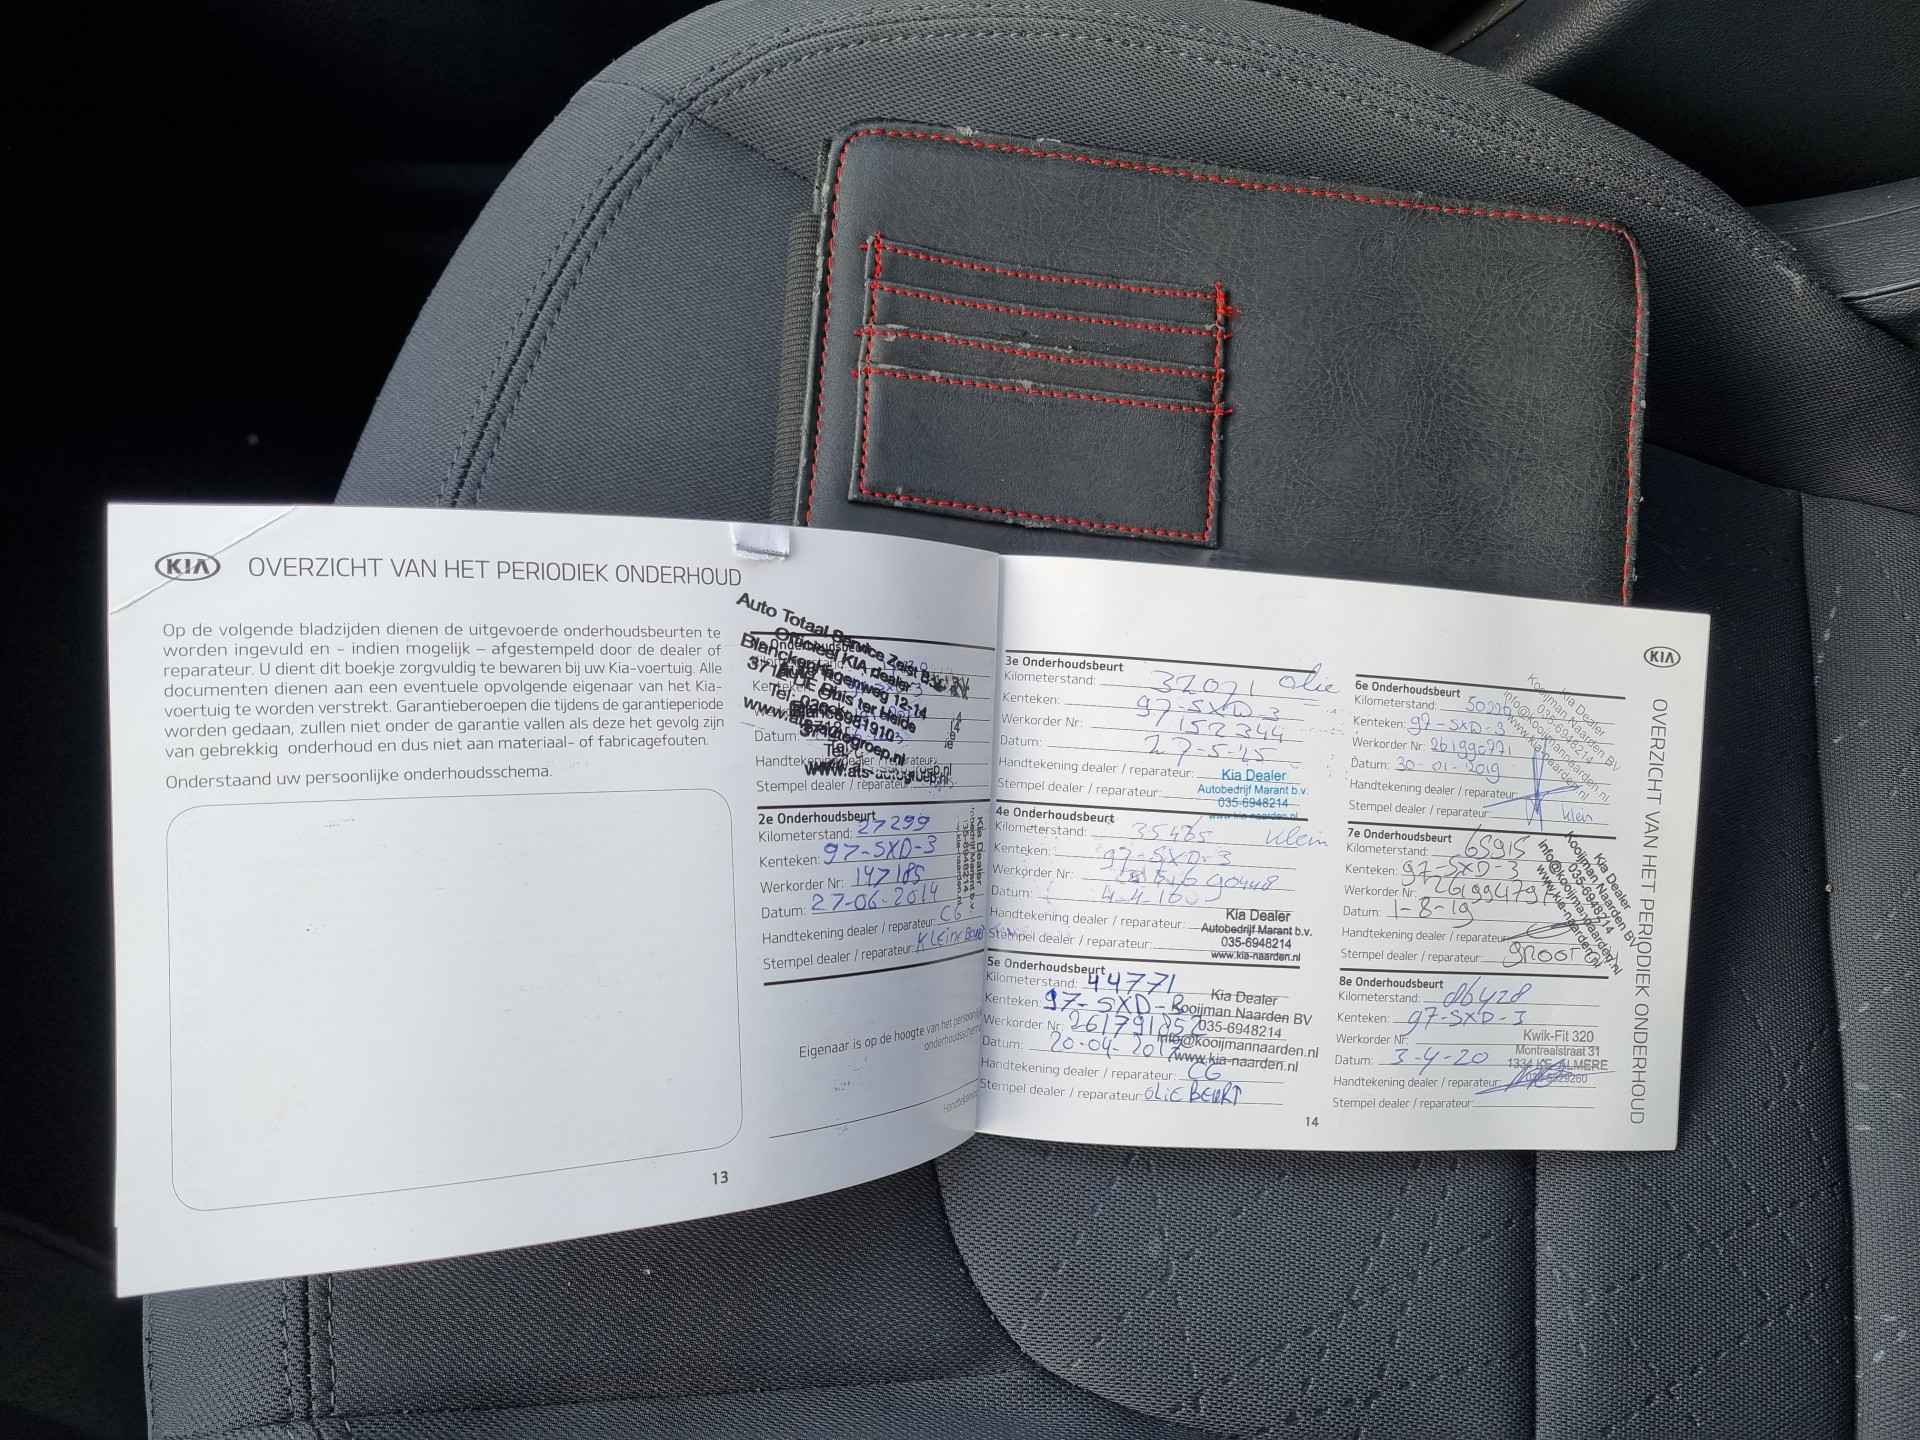 KIA OVERZICHT VAN HET PERIODIEK ONDERHOUD
Op de volgende bladzijden dienen de uitgevoerde onderhoudsbeurten te
worden ingevuld en – indien mogelijk – afgestempeld door de dealer of
reparateur. U dient dit boekje zorgvuldig te bewaren bij uw Kia-voertuig. Alle
documenten dienen aan een eventuele opvolgende eigenaar van het Kia-
voertuig te worden verstrekt. Garantieberoepen die tijdens de garantieperiode
worden gedaan, zullen niet onder de garantie vallen als deze het gevolg zijn
van gebrekkig onderhoud en dus niet aan materiaal- of fabricagefouten.
Onderstaand uw persoonlijke onderhoudsschema.
13
Auto Totaal Service Zeist B.V.
Officieel KIA dealer
Blanckenhagenweg 12-14
Datum:
Handtekening dealer / reparateur:
Stempel dealer / reparateur:
www.ats-autogroep.nl
2e Onderhoudsbeurt
Kilometerstand: 27299
Kenteken: 97-SXD-3
Werkorder Nr: 147185
Datum: 27-06-2014
Handtekening dealer / reparateur: CG
Stempel dealer / reparateur: KLEINE BEURT
Eigenaar is op de hoogte van het persoonlijk
onderhoudsschema
3e Onderhoudsbeurt
Kilometerstand: 32071 olie
Kenteken: 97-SXD-3
Werkorder Nr: 152344
Datum: 27-5-15
Handtekening dealer / reparateur:
Stempel dealer / reparateur:
Kia Dealer
Autobedrijf Marant b.v.
035-6948214
www.kia-naarden.nl
4e Onderhoudsbeurt
Kilometerstand: 35465 klein
Kenteken: 97-SXD-3
Werkorder Nr:
Datum:
Handtekening dealer / reparateur:
Stempel dealer / reparateur:
Kia Dealer
Autobedrijf Marant b.v.
035-6948214
www.kia-naarden.nl
5e Onderhoudsbeurt
Kilometerstand: 44771
Kenteken: 97-SXD-3
Werkorder Nr: 261791852
Datum: 20-04-2017
Handtekening dealer / reparateur: CG
Stempel dealer / reparateur: OLIE BEURT
Kia Dealer
Kooijman Naarden BV
035-6948214
info@kooijmannaarden.nl
www.kia-naarden.nl
14
KIA
6e Onderhoudsbeurt
Kilometerstand:
Kenteken: 97-SXD-3
Werkorder Nr: 261990771
Datum: 30-01-2019
Handtekening dealer / reparateur:
Stempel dealer / reparateur: klein
Kia Dealer
Kooijman Naarden BV
035-6948214
info@kooijmannaarden.nl
www.kia-naarden.nl
7e Onderhoudsbeurt
Kilometerstand: 65915
Kenteken: 97-SXD-3
Werkorder Nr: 261994791
Datum: 1-8-19
Handtekening dealer / reparateur:
Stempel dealer / reparateur: groot
Kia Dealer
Kooijman Naarden BV
035-6948214
info@kooijmannaarden.nl
www.kia-naarden.nl
8e Onderhoudsbeurt
Kilometerstand: 86428
Kenteken: 97-SXD-3
Werkorder Nr:
Datum: 3-4-20
Handtekening dealer / reparateur:
Stempel dealer / reparateur:
Kwik-Fit 320
Montrealstraat 31
ALMERE
OVERZICHT VAN HET PERIODIEK ONDERHOUD